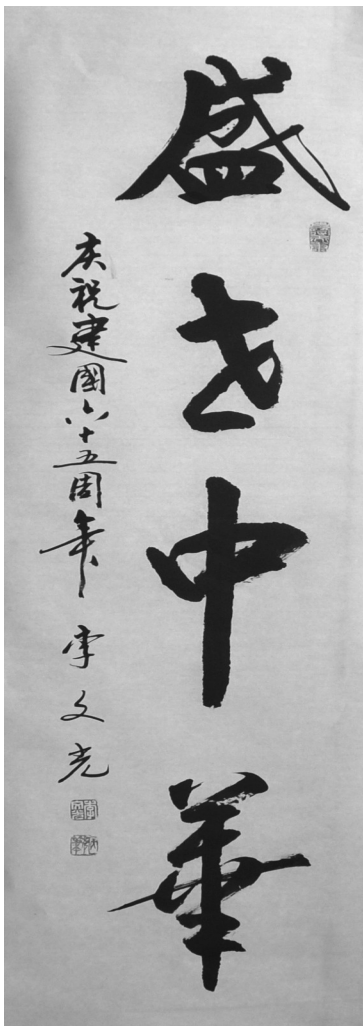 盛世中華
庆祝建國六十五周年 李文光